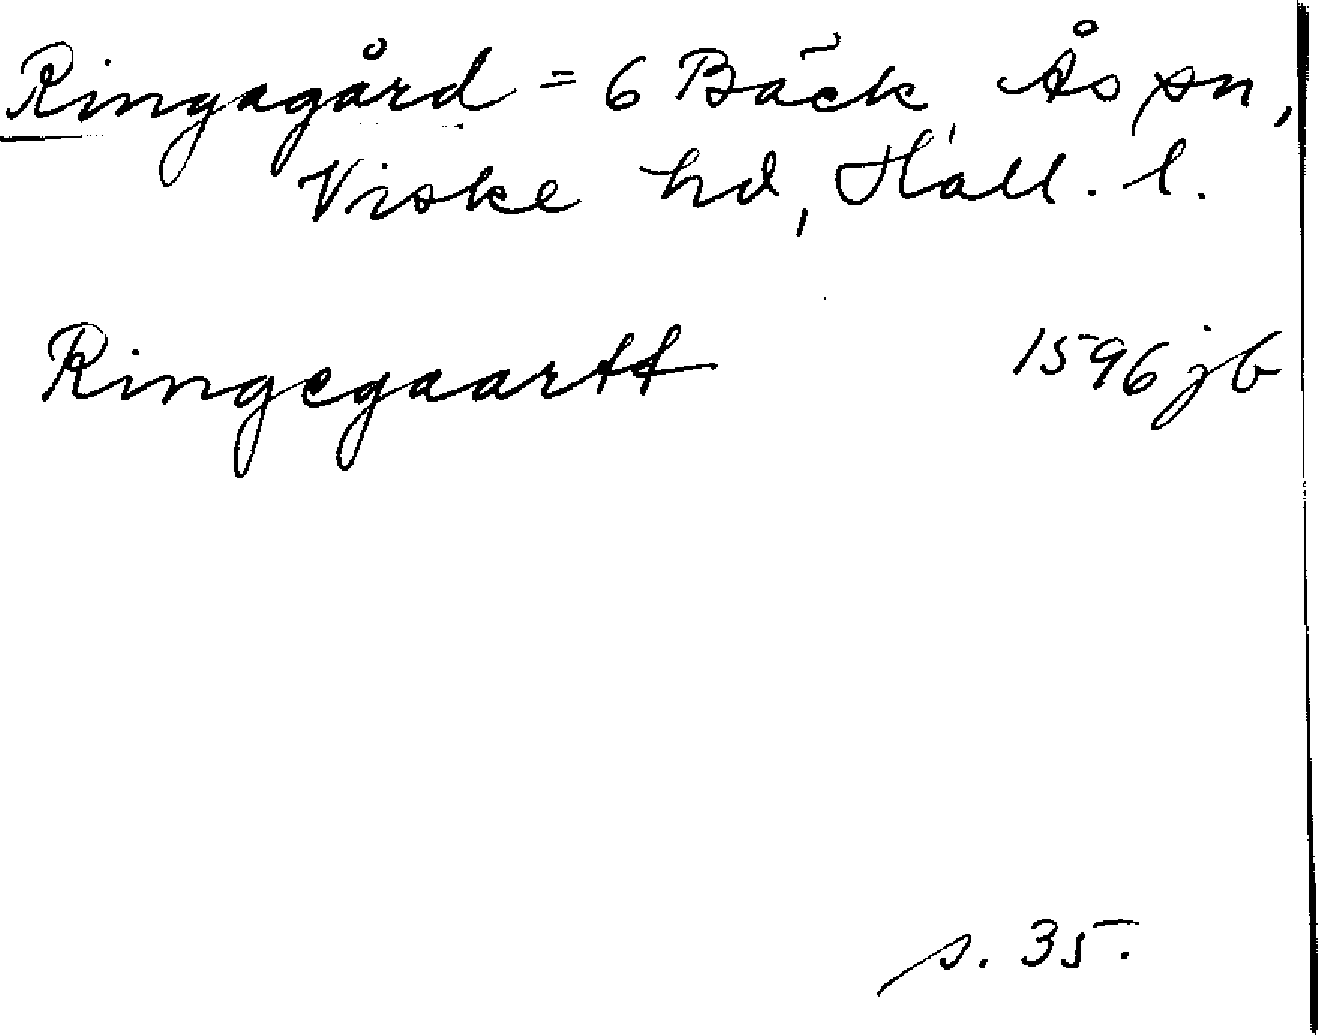 Ringagård = 6 Bäck, Ås sn,
Viske hd, Hall. l.
Ringegaartt 1596 jb
s. 35.